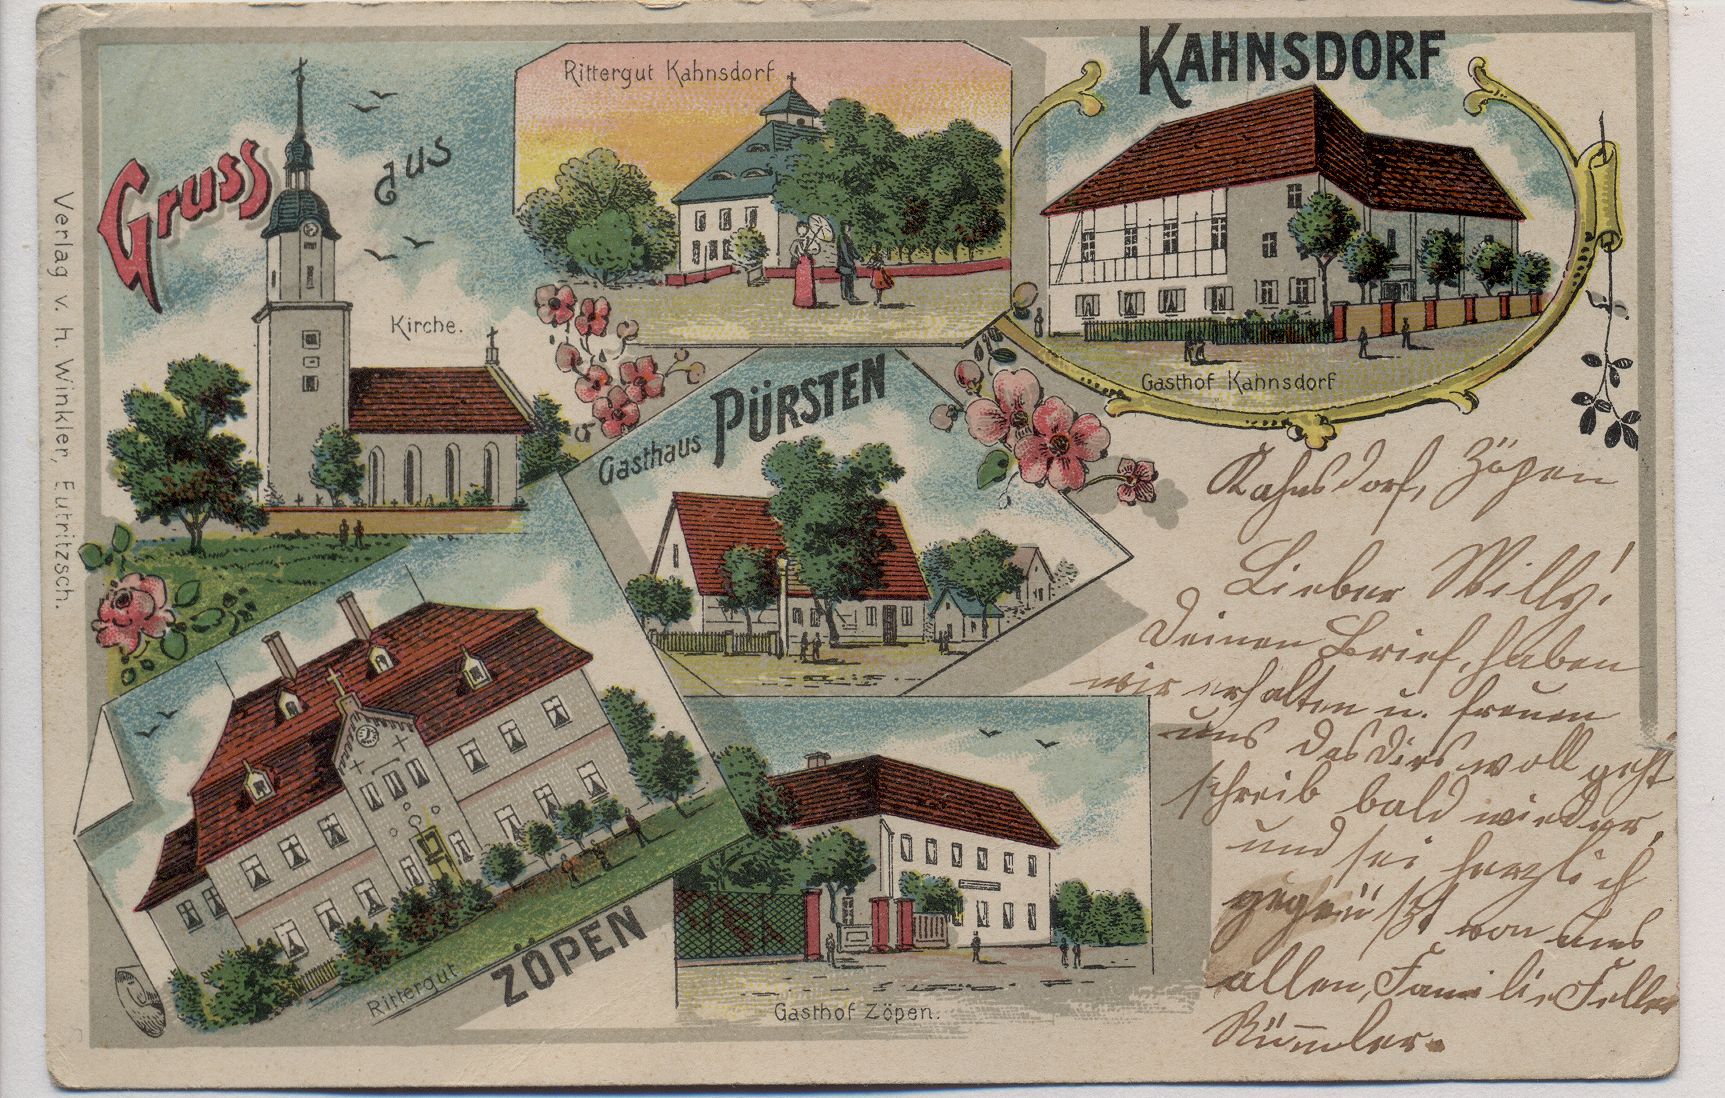 Gruss aus
KAHNSDORF
Rittergut Kahnsdorf
Kirche.
Gasthof Kahnsdorf
Gasthaus PÜRSTEN
Rittergut ZÖPEN
Gasthof Zöpen.
Verlag v. H. Winkler, Eutritzsch.
Kahnsdorf, Zöpen
Lieber Willy!
Deinen Brief, haben
wir erhalten u. freuen
uns das Dirs woll geht
schreib bald wieder,
und sei herzlich
gegrüßt von uns
allen, Familie Feller
Rümmler.